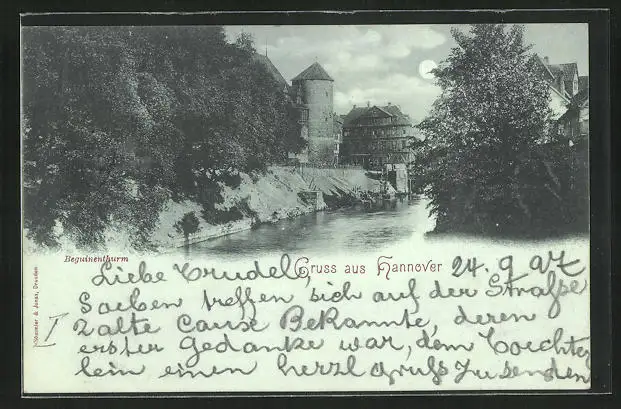 Beguinenthurm
Gruss aus Hannover
24. 9. 97
Liebe Trudel!
Soeben treffen sich auf der Straße
2 alte Bekannte, deren
erster Gedanke war, dem
lein einen herzl Gruß zu senden
Stengel & Dresden